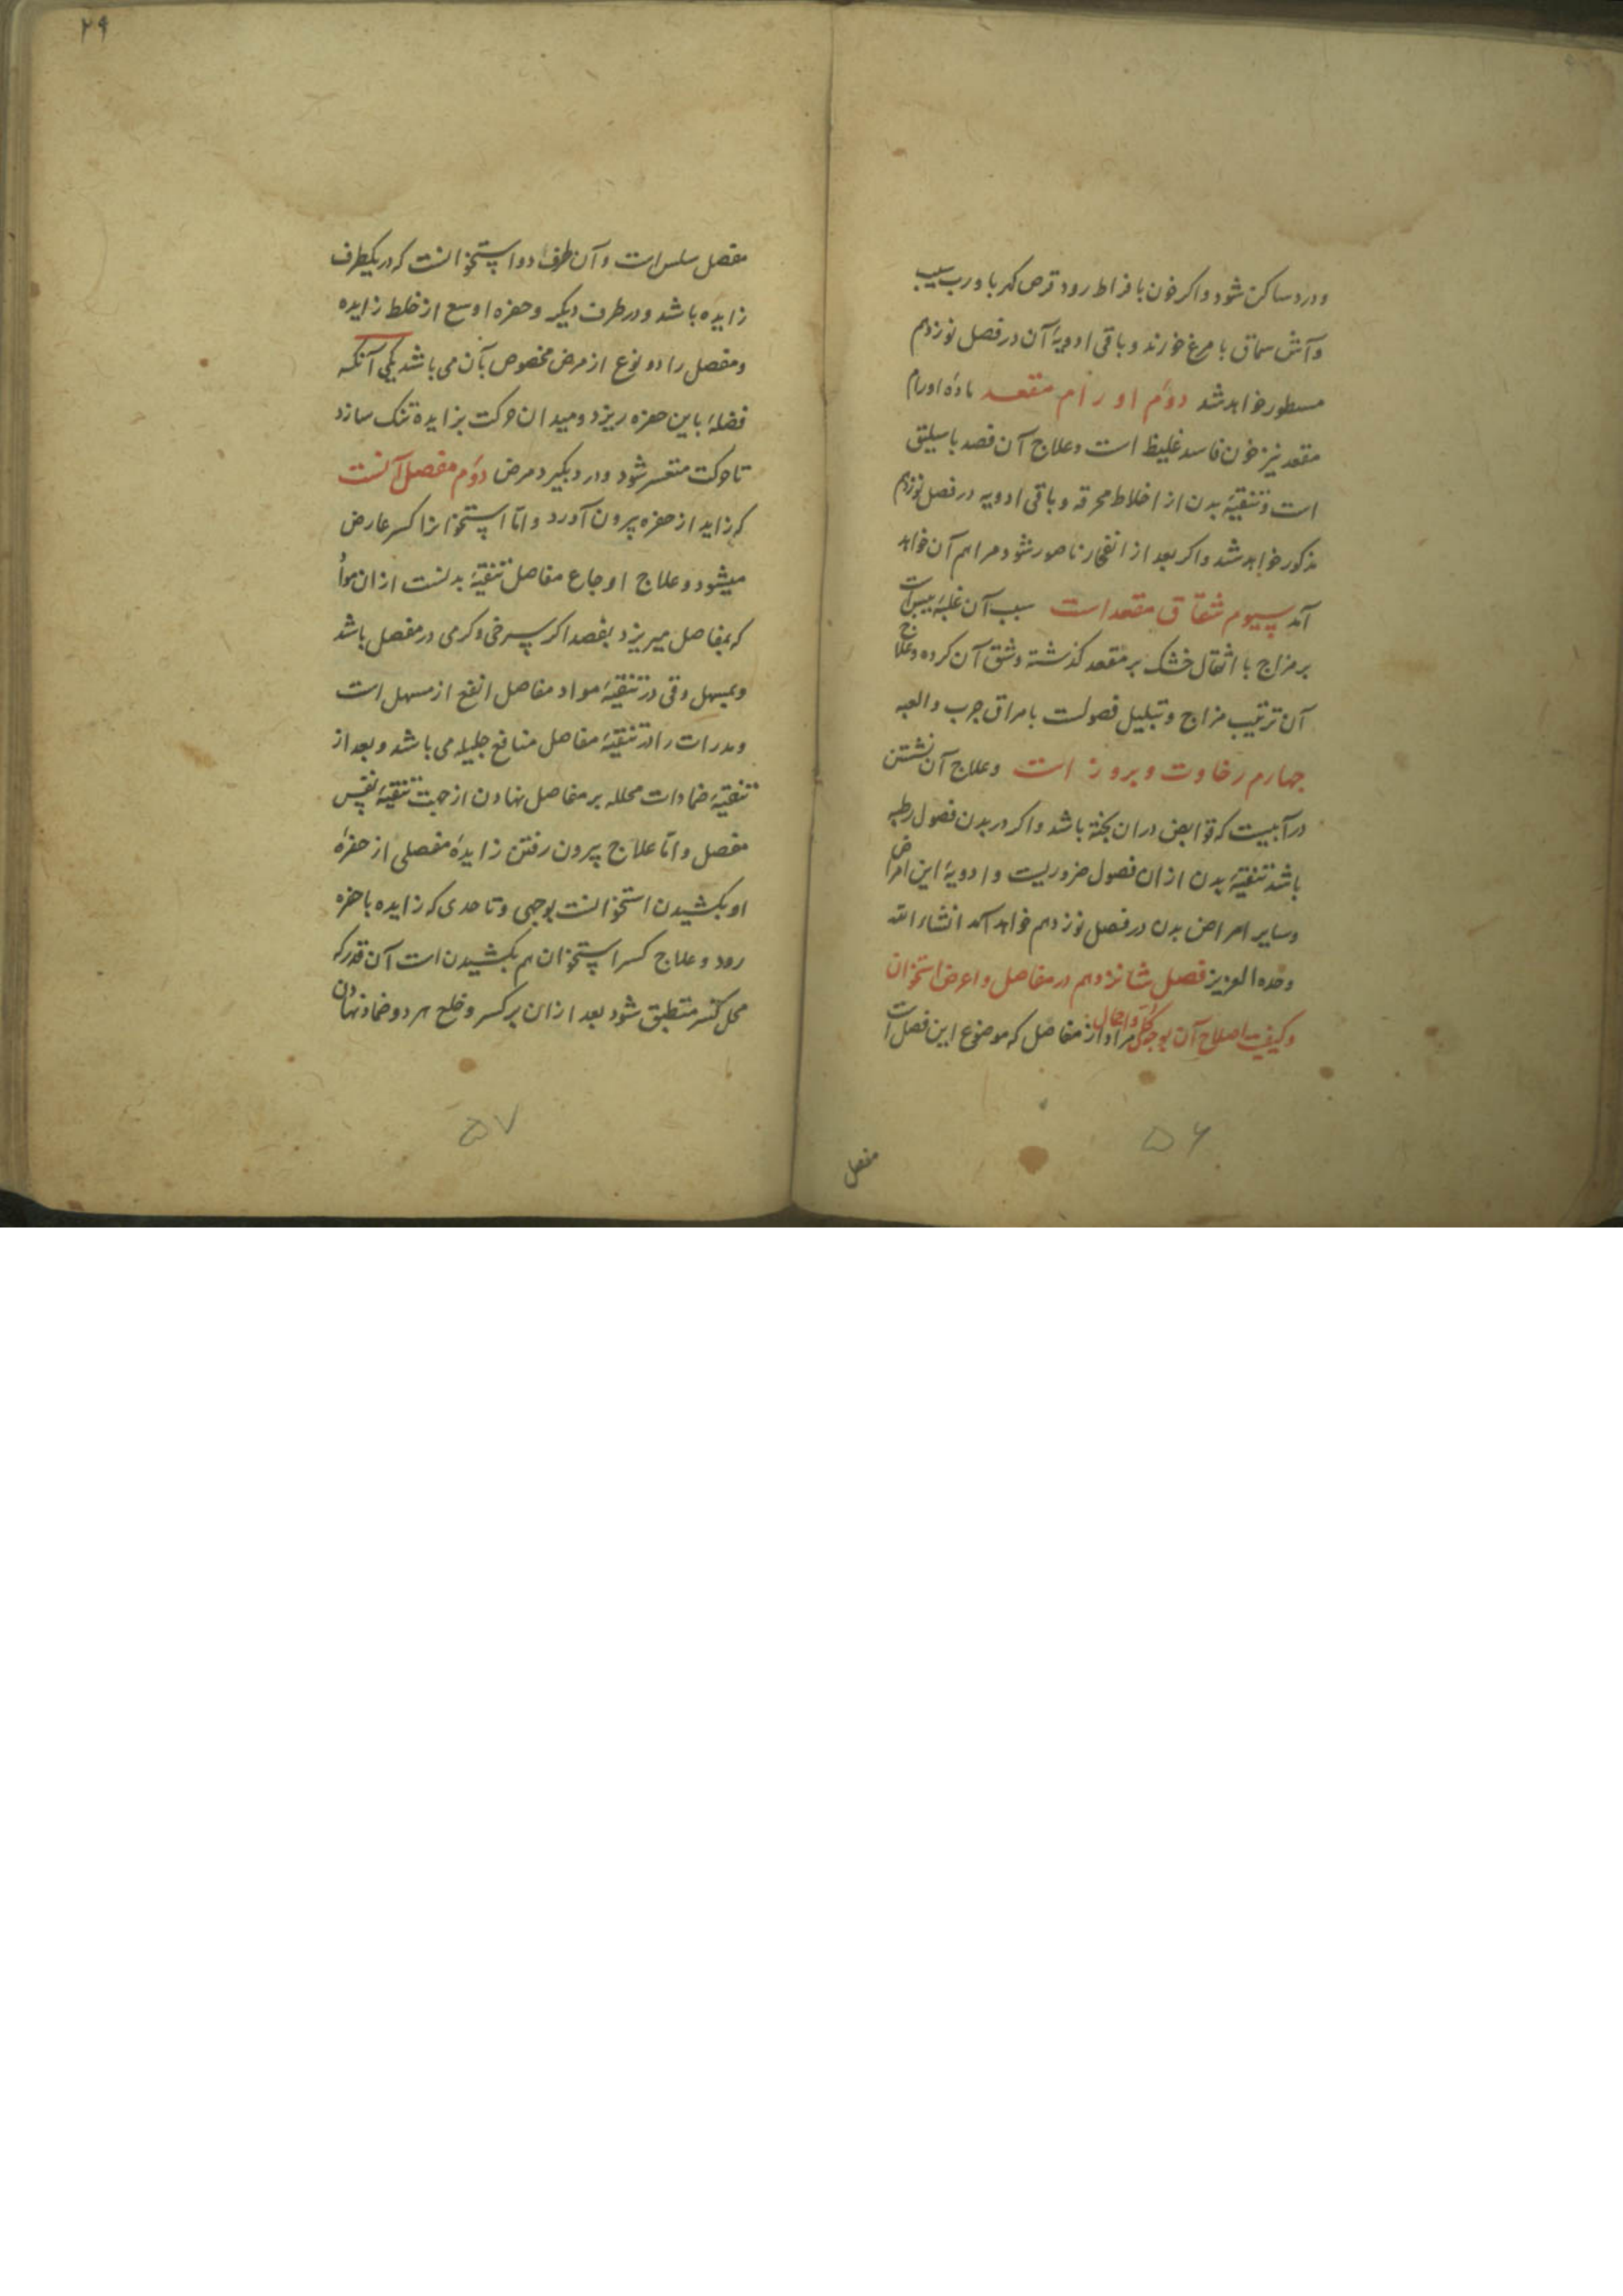 و درد ساکن شود و اکر خون بافراط رود قرص کهربا و رب سیب
و آش سماق با مرغ خورند و باقی ادویهٔ آن در فصل نوزدهم
مسطور خواهد شد دوّم اورام مقعد مادّه اورام
مقعد نیز خون فاسد غلیظ است و علاج آن فصد باسلیق
است و تنقیهٔ بدن از اخلاط محرقه و باقی ادویه در فصل نوزدهم
مذکور خواهد شد و اکر بعد از انفجار ناصور شود مراهم آن خواهد
آمد سیوم شقاق مقعد است سبب آن غلبهٔ یبس است
بر مزاج با اثقال خشک بر مقعد کذشته و شق آن کرده و علاج
آن ترتیب مزاج و تبلیل فصولست بامراق چرب و العبه
چهارم رخاوت و بروز است و علاج آن نشستن
در آبیست که قوابض دران پخته باشد و اکر در بدن فصول رطبه
باشد تنقیهٔ بدن ازان فصول ضروریست و ادویهٔ این امراض
و سایر امراض بدن در فصل نوزدهم خواهد آمد انشاءالله
وحده العزیز فصل شانزدهم در مفاصل و اعراض استخوان
و کیفیت اصلاح آن بوجه کلی و اجمال مراد از مفاصل که موضوع این فصل است
۵۶
مفصل
۲۹
مفصل سلس است و آن طرف دو استخوانست که در یکطرف
زایده باشد و در طرف دیکر و حفره اوسع از خلط زایده
و مفصل را دو نوع از مرض مخصوص بآن می باشد یکی آنکه
فضلهٔ باین حفره ریزد و میدان حرکت بزایده تنک سازد
تا حرکت متعسر شود و درد بکیرد مرض دوّم مفصل آنست
که زاید از حفره بیرون آورد و امّا استخوانرا کسر عارض
میشود و علاج اوجاع مفاصل تنقیهٔ بدنست ازان مواد
که بمفاصل میریزد بفصد اکر سرخی و کرمی در مفصل باشد
و بمسهل و قی در تنقیهٔ مواد مفاصل انفع از مسهل است
و مدرات را در تنقیهٔ مفاصل منافع جلیله می باشد و بعد از
تنقیهٔ ضمادات محلله بر مفاصل نهادن از جهت تنقیهٔ نفس
مفصل و امّا علاج بیرون رفتن زایدهٔ مفصلی از حفرهٔ
او بکشیدن استخوانست بوجهی و تا حدی که زایده با حفره
رود و علاج کسر استخوان هم بکشیدن است آن قدر که
محل کسر منطبق شود بعد ازان بر کسر و خلع هر دو ضماد نهادن
۵۷